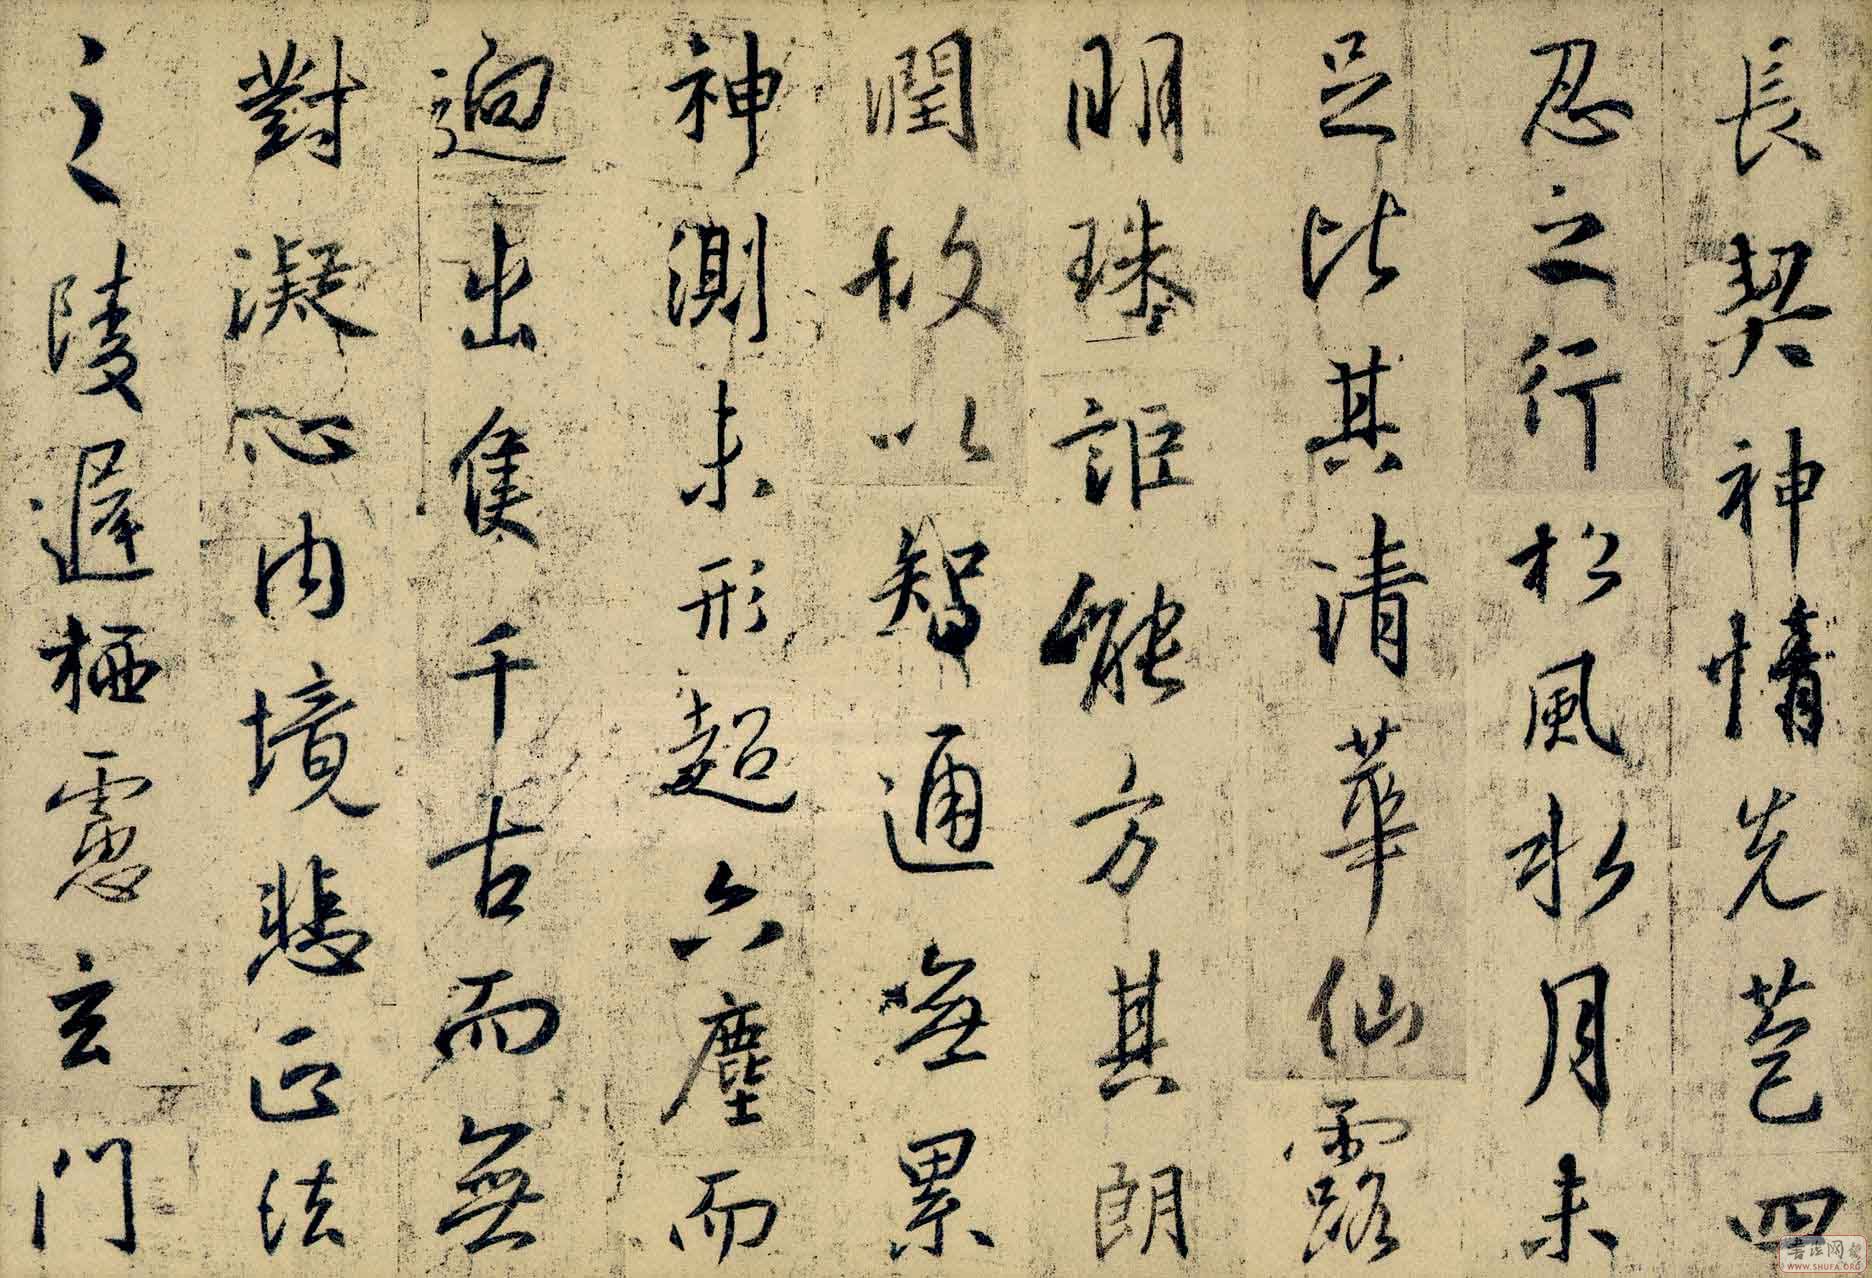 長契神情先苞四
忍之行松風水月未
足比其清華仙露
明珠詎能方其朗
潤故以智通無累
神測未形超六塵而
迥出隻千古而無
對凝心內境悲正法
之陵遲栖慮玄門
书法网
WWW.SHUFA.ORG